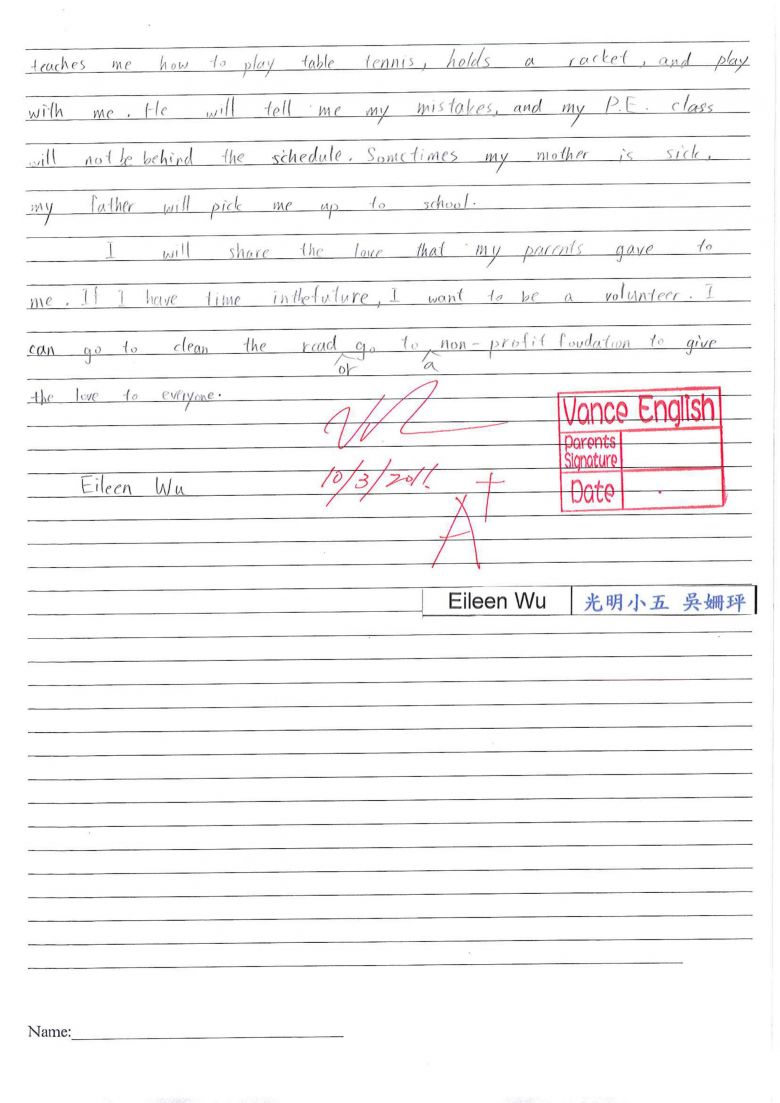 teaches me how to play table tennis, holds a racket, and play
with me. He will tell me my mistakes, and my P.E. class
will not be behind the schedule. Sometimes my mother is sick,
my father will pick me up to school.
I will share the love that my parents gave to
me. If I have time in the future, I want to be a volunteer. I
can go to clean the road go to non-profit foudation to give
or a
the love to everyone.
Vance English
Parents Signature
Date
10/3/2011
Eileen Wu
A+
Eileen Wu 光明小五 吳姍玶
Name: